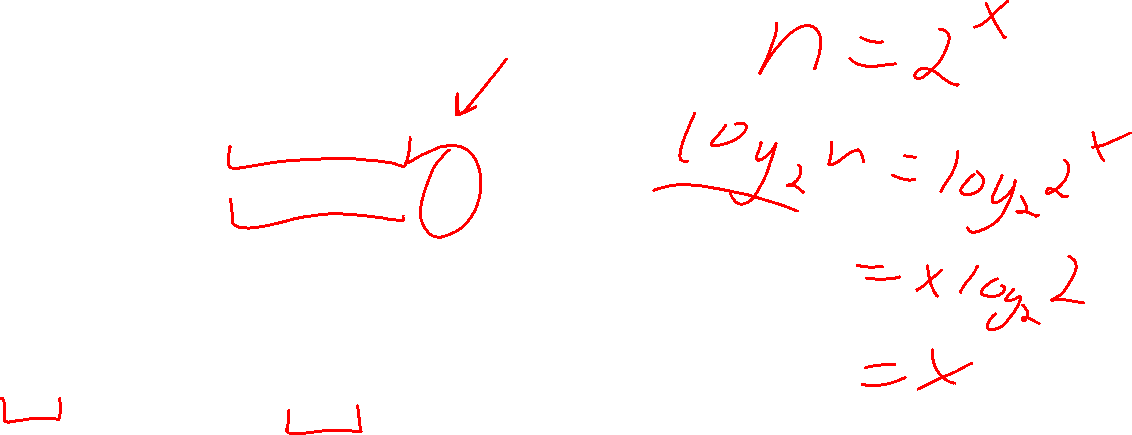 n = 2^x
log₂ n = log₂ 2^x
= x log₂ 2
= x